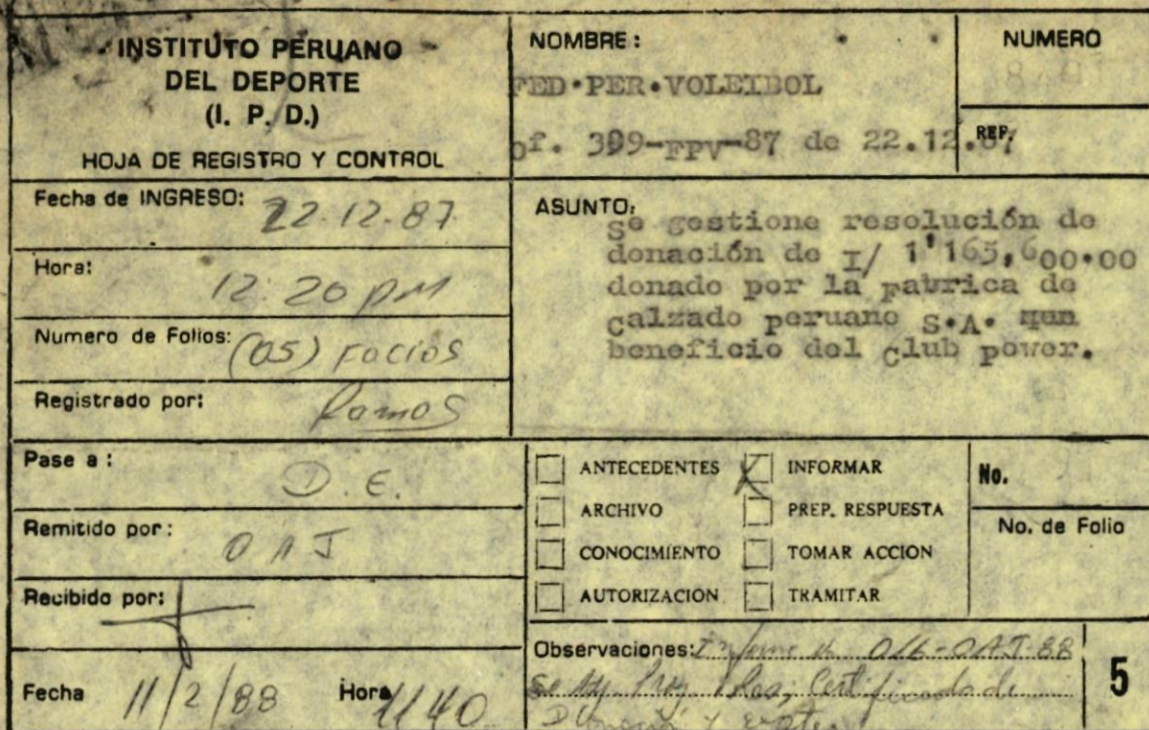 INSTITUTO PERUANO
DEL DEPORTE
(I. P. D.)
HOJA DE REGISTRO Y CONTROL
NOMBRE:
FED.PER.VOLEIBOL
Of. 399-FPV-87 de 22.12.87
NUMERO
REF.
Fecha de INGRESO: 22.12.87
Hora: 12.20 pm
Numero de Folios: (05) Folios
Registrado por: Ramos
ASUNTO:
Se gestione resolución de
donación de I/ 1'165,600.00
donado por la Fabrica de
Calzado peruano S.A.
beneficio del Club power.
Pase a: D. E.
Remitido por: OAJ
Recibido por:
Fecha 11/2/88 Hora 1140
ANTECEDENTES
INFORMAR
ARCHIVO
PREP. RESPUESTA
CONOCIMIENTO
TOMAR ACCION
AUTORIZACION
TRAMITAR
No.
No. de Folio
Observaciones: Informe
Certificado de
5